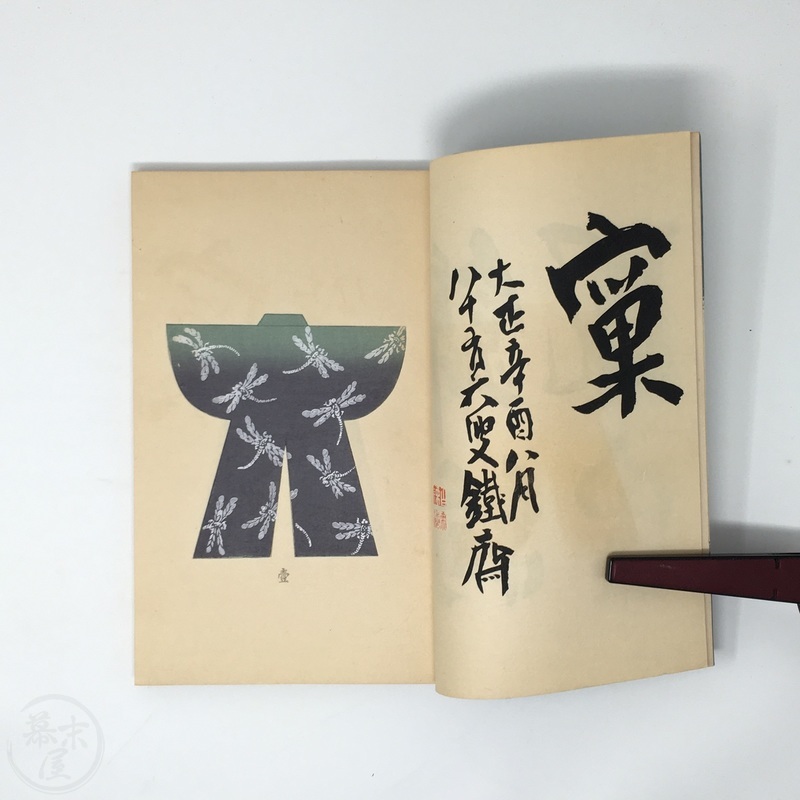 窠
大正辛酉八月
八十有六叟鐵齋
壹
幕末屋